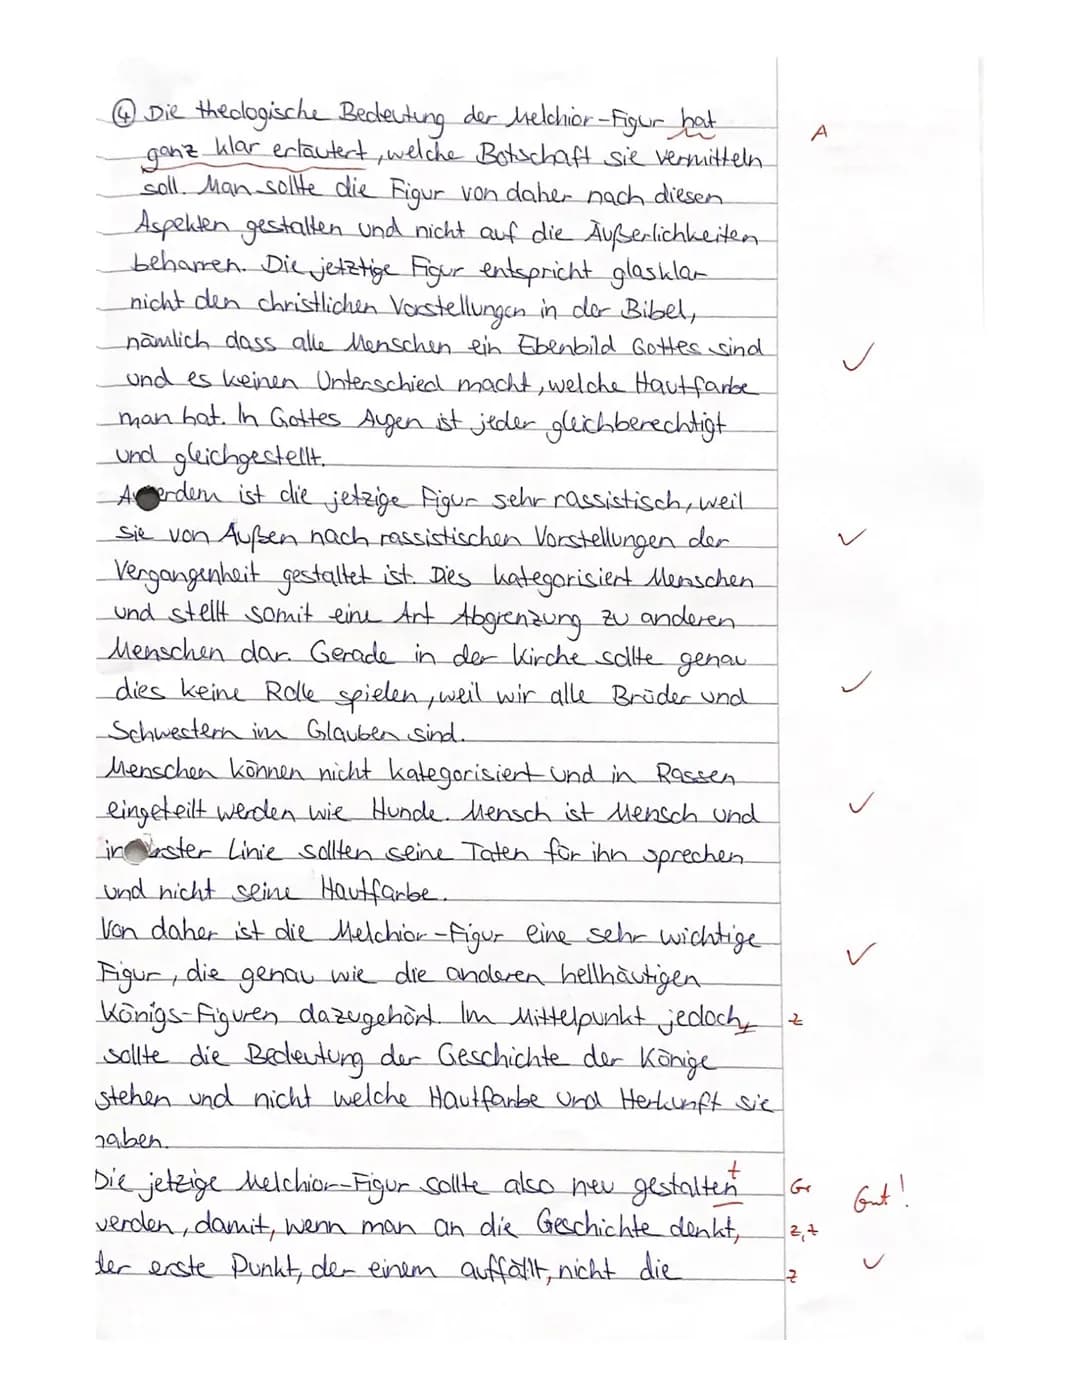 ④ Die theologische Bedeutung der Melchior-Figur hat A
ganz klar erläutert, welche Botschaft sie vermitteln
soll. Man sollte die Figur von daher nach diesen
Aspekten gestalten und nicht auf die Äußerlichkeiten
beharren. Die jetztige Figur entspricht glasklar
nicht den christlichen Vorstellungen in der Bibel,
nämlich dass alle Menschen ein Ebenbild Gottes sind ✓
und es keinen Unterschied macht, welche Hautfarbe
man hat. In Gottes Augen ist jeder gleichberechtigt
und gleichgestellt.
erdem ist die jetzige Figur sehr rassistisch, weil
sie von Außen nach rassistischen Vorstellungen der ✓
Vergangenheit gestaltet ist. Dies kategorisiert Menschen
und stellt somit eine Art Abgrenzung zu anderen
Menschen dar. Gerade in der Kirche sollte genau
dies keine Rolle spielen, weil wir alle Brüder und ✓
Schwestern im Glauben sind.
Menschen können nicht kategorisiert und in Rassen
eingeteilt werden wie Hunde. Mensch ist Mensch und ✓
in erster Linie sollten seine Taten für ihn sprechen
und nicht seine Hautfarbe.
Von daher ist die Melchior-Figur eine sehr wichtige ✓
Figur, die genau wie die anderen hellhäutigen
Königs-Figuren dazugehört. Im Mittelpunkt jedoch, z
sollte die Bedeutung der Geschichte der Könige
stehen und nicht welche Hautfarbe und Herkunft sie
haben.
Die jetzige Melchior-Figur sollte also neu gestalten t Gr Gut!
werden, damit, wenn man an die Geschichte denkt, z,z
der erste Punkt, der einem auffällt, nicht die z ✓